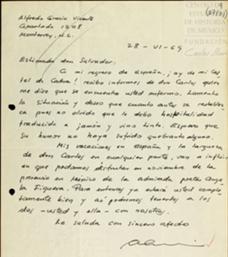 Alfredo Gracia Vicente
Apartado 1208
Monterrey, N.L.
28 - VI - 69
Estimado don Salvador:
A mi regreso de España, ¡ay de mi
de Cabra! recibo informes de don Carlos que
me dice que se encuentra usted enfermo. Lamento
la situación y deseo que cuanto antes se restablezca
pues no olvido que le debo hospitalidad
traducida a jamón y vino tinto. Espero que
su humor no haya sufrido quebranto alguno.
Mis vacaciones en España y la largueza
de don Carlos en cualquier parte, van a influir
en que podamos disfrutar en noviembre de la
presencia en México de la admirada poeta Angela
Figuera. Para entonces ya estará usted completamente
bien y así podremos tenerlos a los
dos - usted y ella - con nosotros.
Le saluda con sincero afecto